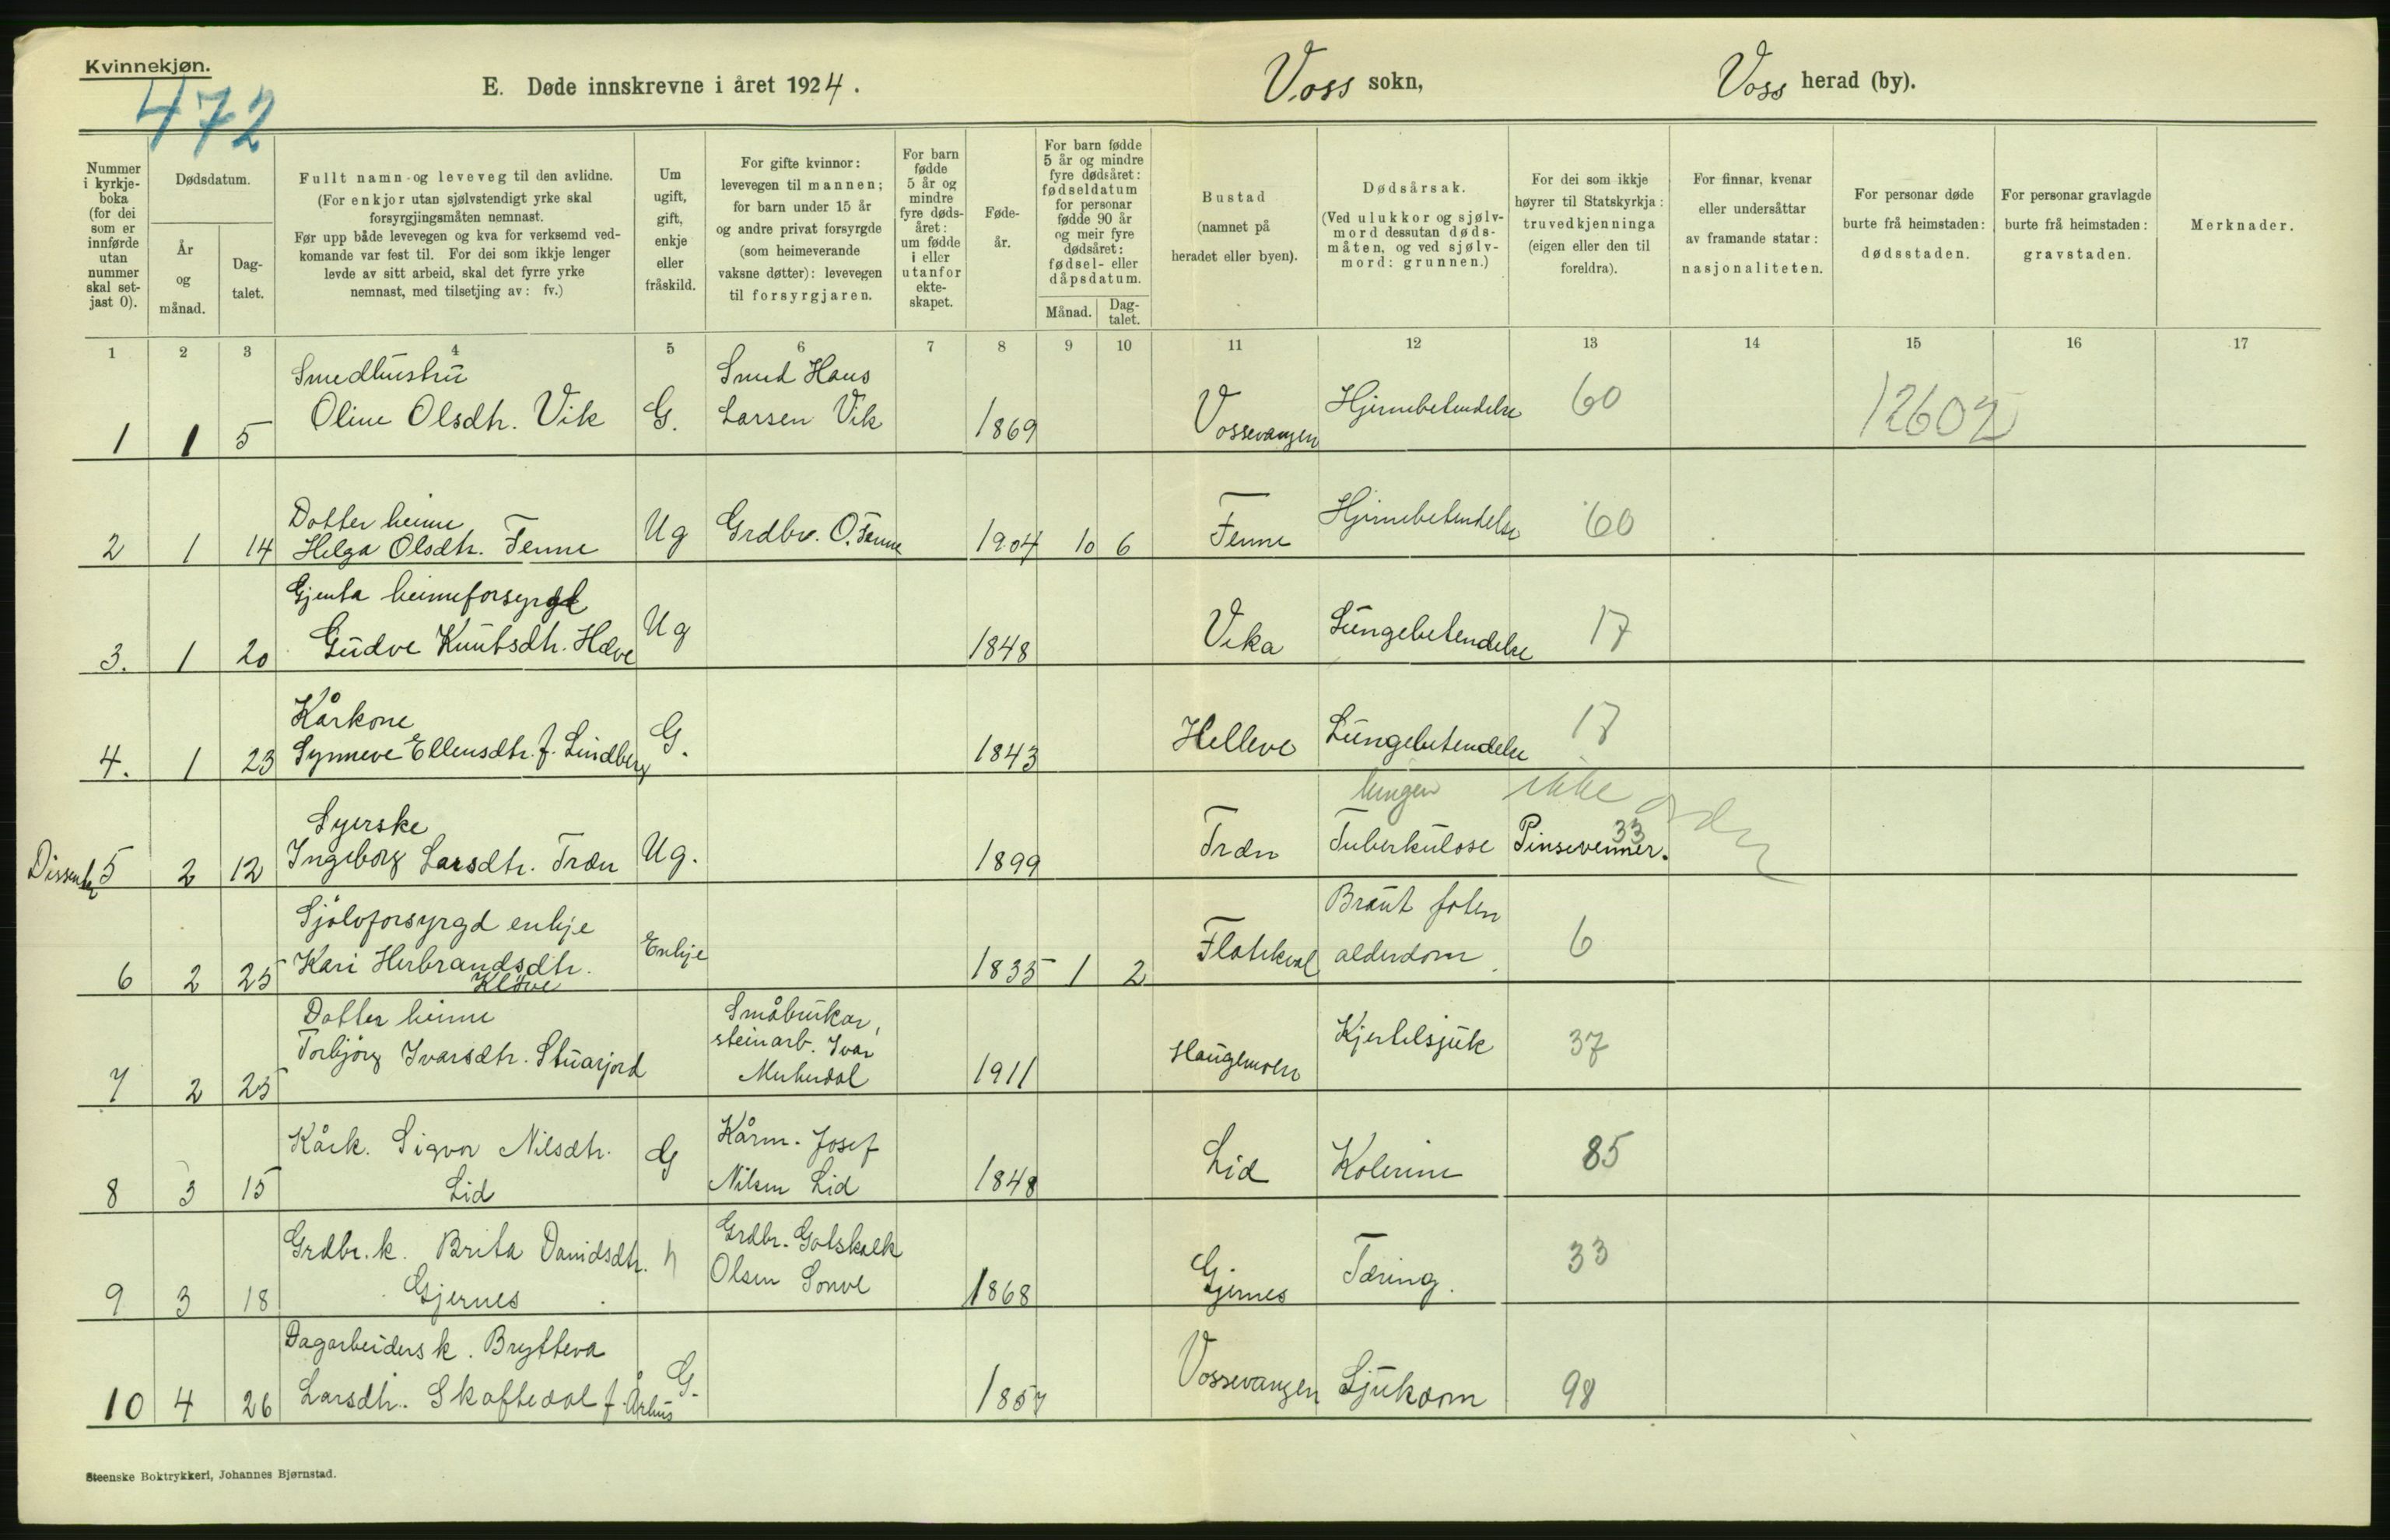 Kvinnekjøn.
472
E. Døde innskrevne i året 1924.
Voss sokn,
Voss herad (by).
Nummer i kyrkjeboka (for dei som er innførde utan nummer skal setjast 0).
Dødsdatum.
År og månad.
Dagtalet.
Fullt namn og leveveg til den avlidne.
(For enkjor utan sjølvstendigt yrke skal
forsyrgjingsmåten nemnast.
Før upp både levevegen og kva for verksemd ved-
komande var fest til. For dei som ikkje lenger
levde av sitt arbeid, skal det fyrre yrke
nemnast, med tilsetjing av: fv.)
Um ugift, gift, enkje eller fråskild.
For gifte kvinnor:
levevegen til mannen;
for barn under 15 år
og andre privat forsyrgde
(som heimeverande
vaksne døtter): levevegen
til forsyrgjaren.
For barn fødde 5 år og mindre fyre døds-året: um fødde i eller utanfor ekte-skapet.
Føde-år.
For barn fødde 5 år og mindre fyre dødsåret: fødseldatum for personar fødde 90 år og meir fyre dødsåret: fødsel- eller dåpsdatum.
Månad.
Dag-talet.
Bustad
(namnet på
heradet eller byen).
Dødsårsak.
(Ved ulukkor og sjølv-
mord dessutan døds-
måten, og ved sjølv-
mord: grunnen.)
For dei som ikkje
høyrer til Statskyrkja:
truvedkjenninga
(eigen eller den til
foreldra).
For finnar, kvenar
eller undersåttar
av framande statar:
nasjonaliteten.
For personar døde
burte frå heimstaden:
dødsstaden.
For personar gravlagde
burte frå heimstaden:
gravstaden.
Merknader.
1 2 3 4 5 6 7 8 9 10 11 12 13 14 15 16 17
Smedhustru Smed Hans
1 1 5 Oline Olsdtr. Vik G. Larsen Vik 1869 Vossevangen Hjernebetendelse 60 12602
Dotter heime
2 1 14 Helga Olsdtr. Fenne Ug Grdbr. O. Fenne 1904 10 6 Fenne Hjernebetendelse 60
Gjenta heimeforsyrgd
3. 1 20 Gudve Knutsdtr. Hæve Ug 1848 Vika Lungebetendelse 17
Kårkone
4. 1 23 Synneve Ellensdtr. f. Lindberg G. 1843 Helleve Lungebetendelse 17
Syerske lungen ikke
Dissenter 5 2 12 Ingeborg Larsdtr. Træn Ug. 1899 Træn Tuberkulose Pinsevenner. 33
Sjølvforsyrgd enkje Braut foten
6 2 25 Kari Herbrandsdtr. Kløve Enkje 1835 1 2 Flatekval alderdom 6
Dotter heime Småbrukar,
Torbjørg Ivarsdtr. steinarb. Ivar
7 2 25 1911 Haugemoen Kjertelsjuk 37
Kårk. Sigvor Nilsdtr. G Kårm. Josef
8 3 15 Lid Nilsen Lid 1848 Lid Kolerine 85
Grdbr. k. Brita Davidsdtr. Grdbr. Gotskalk
9 3 18 Gjernes Olsen Sonve 1868 Gjernes Tæring. 33
Dagarbeiders k. Brytteva
10 4 26 Larsdtr. Skaftedal f. Århus G. 1857 Vossevangen Sjukdom 98
Steenske Boktrykkeri, Johannes Bjørnstad.